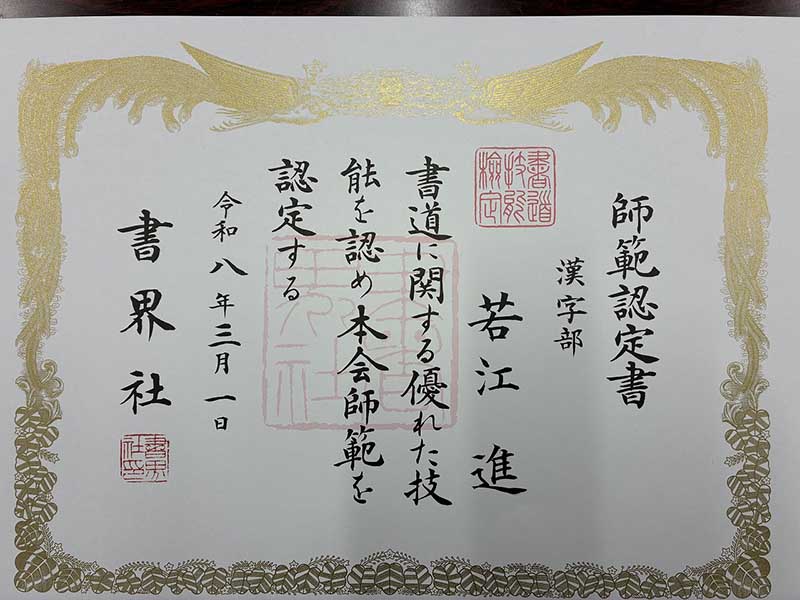 師範認定書
漢字部
若江進
書道技能検定
書道に関する優れた技
能を認め本会師範を
認定する
令和八年三月一日
書界社
書界社印